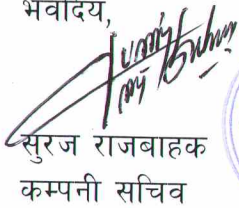 भवदीय,
सुरज राजबाहक
कम्पनी सचिव